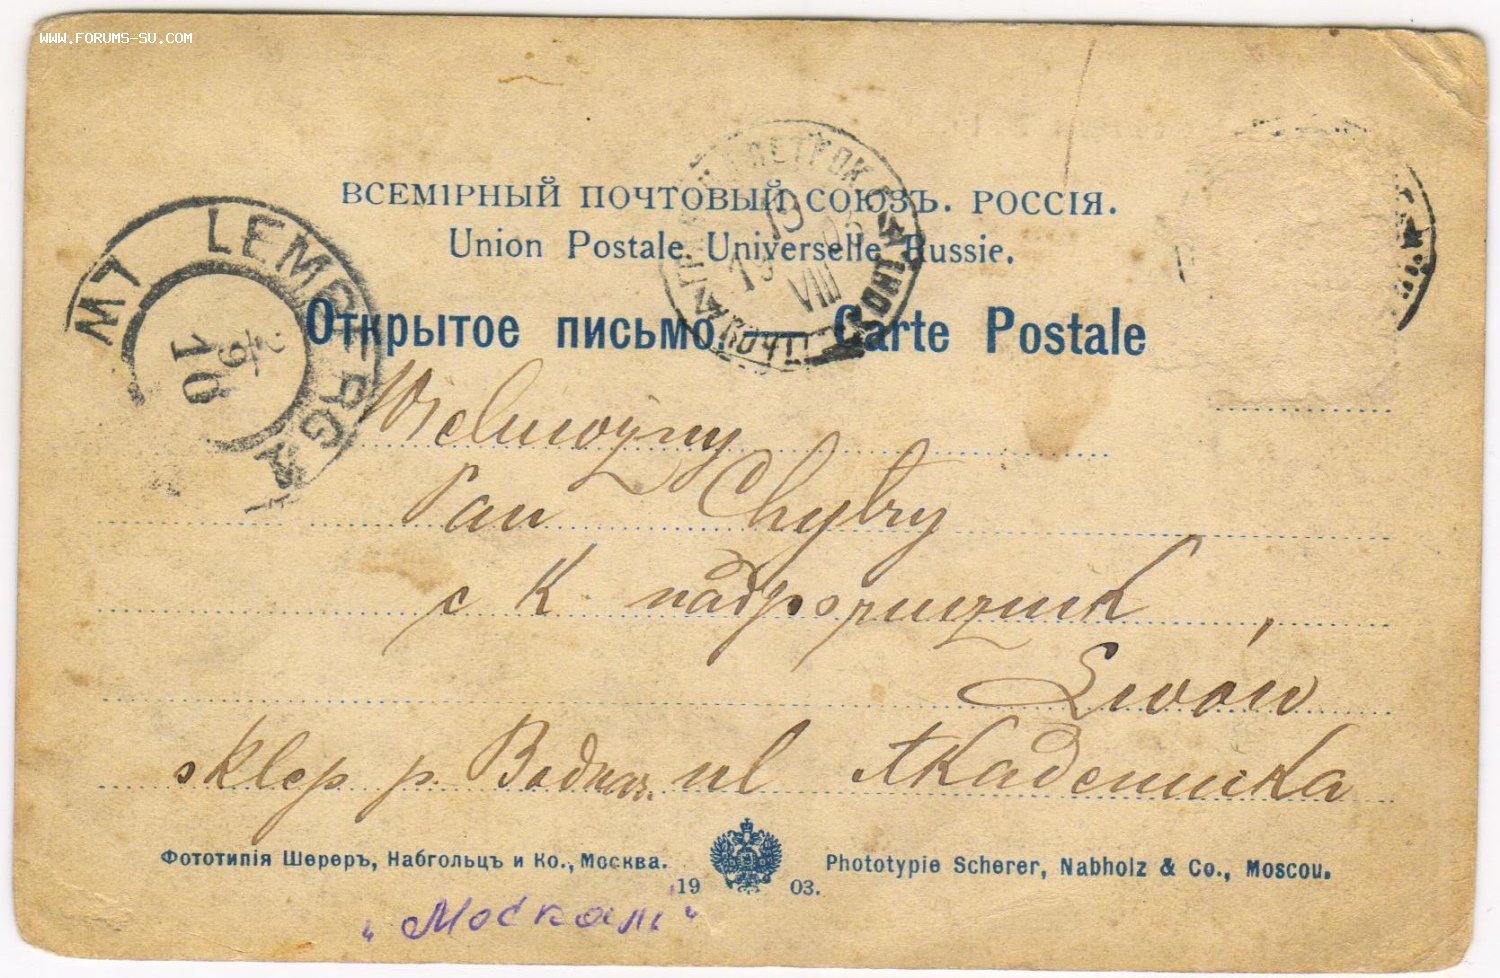 WWW.FORUMS-SU.COM
ВСЕМІРНЫЙ ПОЧТОВЫЙ СОЮЗЪ. РОССІЯ.
Union Postale Universelle Russie.
Открытое письмо. — Carte Postale
LEMBERG
LW
2/9
10
19
VIII
Wielmożny
Pan Chytry
c K nadporucznik,
Lwów
sklep p. Bodnar. ul Akademicka
Фототипія Шереръ, Набгольцъ и Ко., Москва.
Phototypie Scherer, Nabholz & Co., Moscou.
1903.
"Москаль"